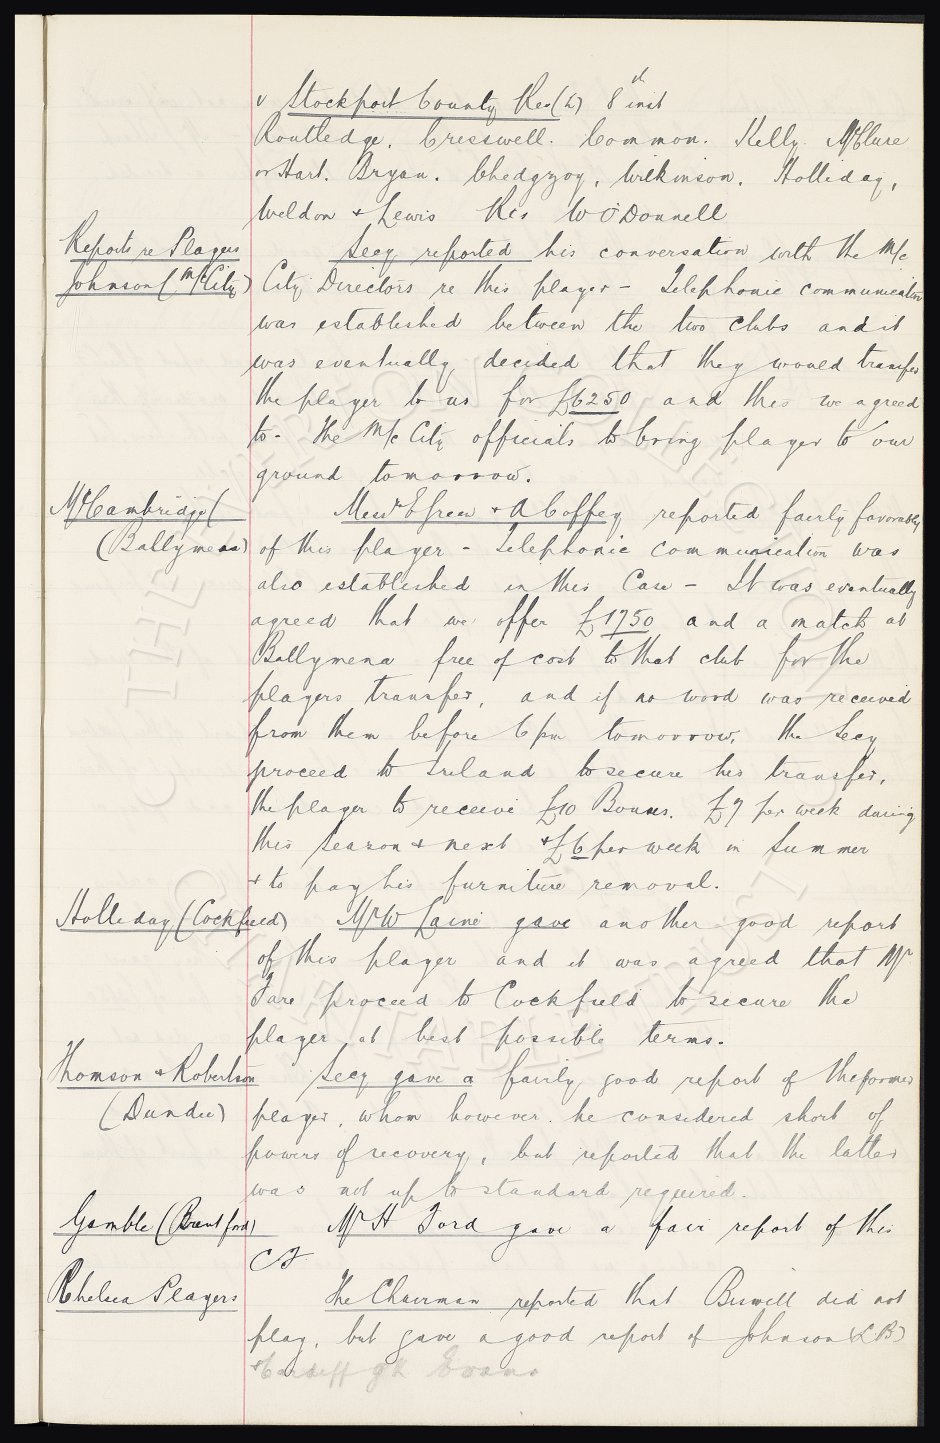 v Stockport County Res (h) 8th inst
Routledge. Cresswell. Common. Kelly. McClure
or Hart. Bryan. Chedgzoy, Wilkinson. Holliday,
Weldon & Lewis Res W O'Donnell
Reports re Players
Johnson (M/c City)
Secy reported his conversation with the M/c
City Directors re this player - Telephonic communication
was established between the two clubs and it
was eventually decided that they would transfer
the player to us for £6250 and this we agreed
to - The M/c City officials to bring player to our
ground tomorrow.
McCambridge (
(Ballymena)
Messrs E Green & A Coffey reported fairly favorably
of this player - Telephonic communication was
also established in this Case - It was eventually
agreed that we offer £1750 and a match at
Ballymena free of cost to that club for the
players transfer, and if no word was received
from them before 6 pm tomorrow, the Secy
proceed to Ireland to secure his transfer,
the player to receive £10 Bonus. £7 per week during
this season & next & £6 per week in Summer
& to pay his furniture removal.
Holliday (Cockfield)
Mr W gave another good report
of this player and it was agreed that Mr
proceed to Cockfield to secure the
player at best possible terms.
Thomson & Robertson
(Dundee)
Secy gave a fairly good report of the former
player, whom however he considered short of
powers of recovery, but reported that the latter
was not up to standard required.
Gamble (Brentford)
CF
Mr H gave a fair report of this
Chelsea Players
The Chairman reported that did not
play, but gave a good report of Johnson (LB)
& Cardiff GK Evans